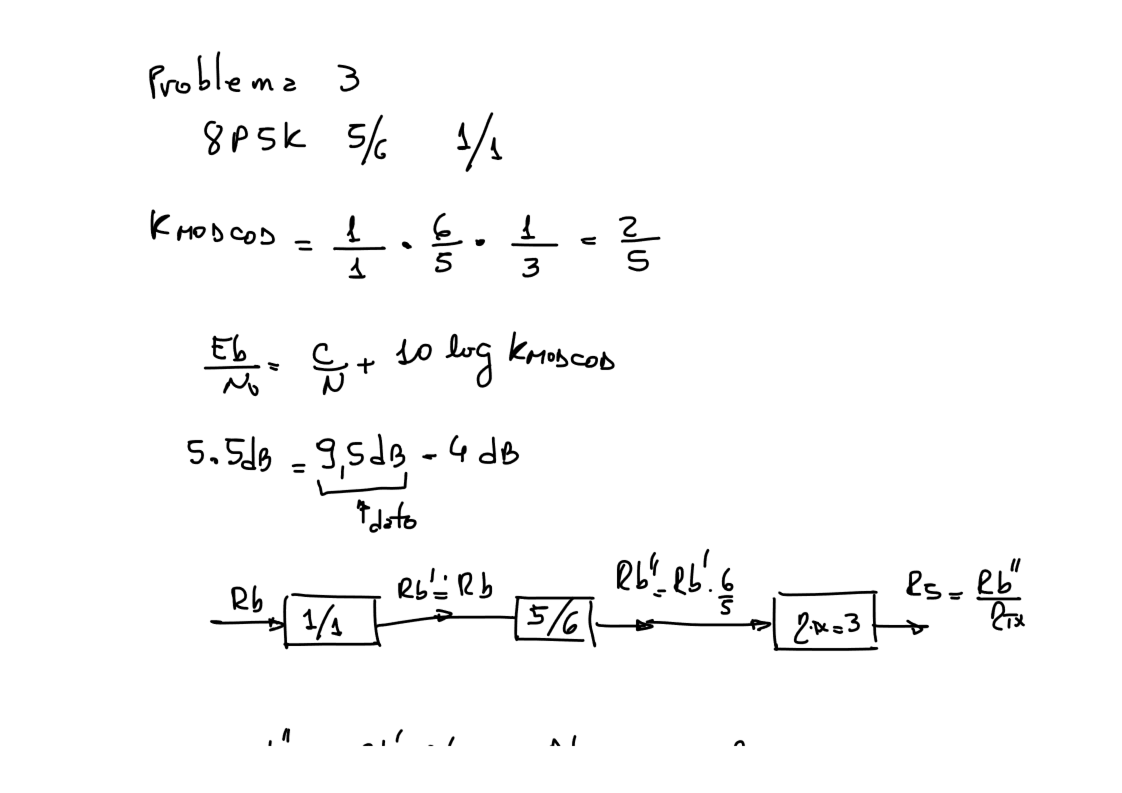 Problema 3
8PSK 5/6 1/1
K MODCOD = 1/1 · 6/5 · 1/3 = 2/5
Eb/No = C/N + 10 log KMODCOD
5.5dB = 9,5dB - 4 dB
↑dato
Rb 1/1 Rb' = Rb 5/6 Rb'' = Rb' · 6/5 ηtx=3 Rs = Rb''/ηTx